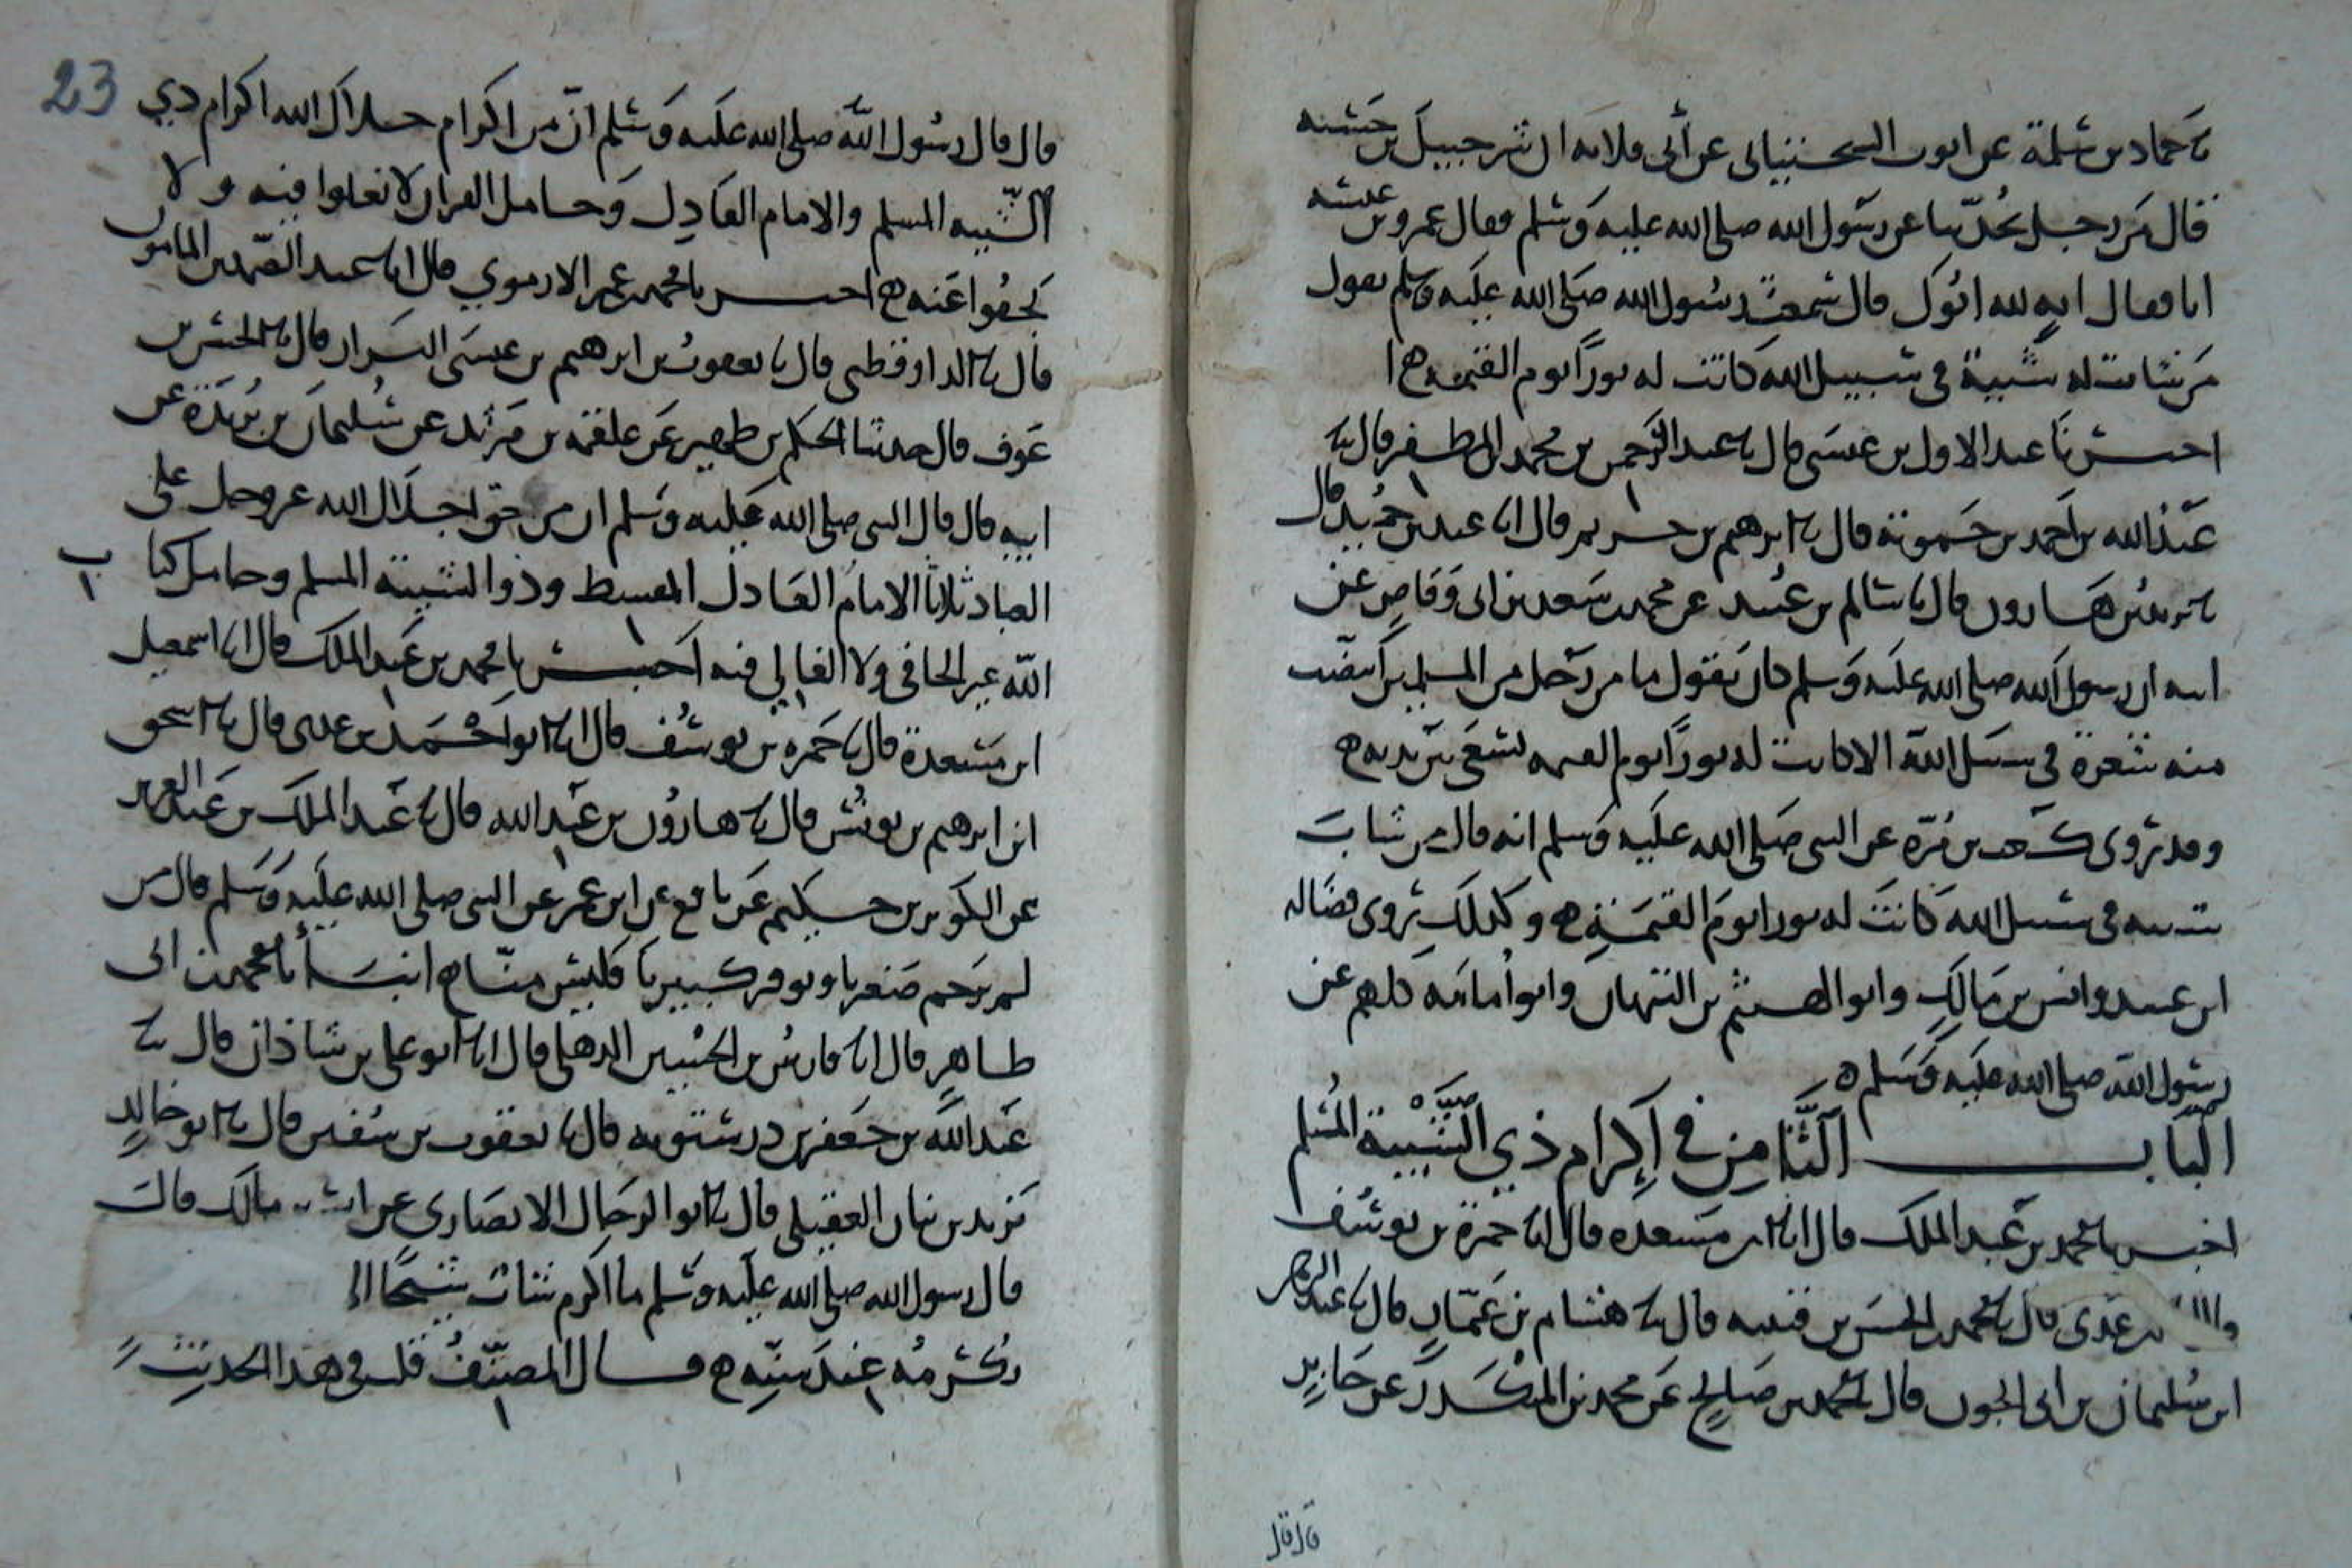 نا حماد بن سلمة عن ايوب السختياني عن أبي قلابه ان شرحبيل بن حسنه
قال من رجل يحدثنا عن رسول الله صلى الله عليه وسلم فقال عمرو بن عبسه
انا فقال ايه لله ابوك قال سمعت رسول الله صلى الله عليه وسلم يقول
من شابت له شيبة في سبيل الله كانت له نورًا يوم القيمه ه ا
اخبرنا عبد الاول بن عيسى قال نا عبد الرحمن بن محمد المظفر قال نا
عبد الله بن احمد بن حمويه قال نا ابرهيم بن خريم قال انا عبد بن حميد قال
نا يزيد بن هارون قال نا سالم بن عبيد عن محمد بن سعد بن ابي وقاص عن
ابيه ان رسول الله صلى الله عليه وسلم كان يقول ما من رجل من المسلمين ابيضت
منه شعرة في سبيل الله الا كانت له نورًا يوم القيمه تسعى بين يديه ه
وقد روى كعب بن مرة عن النبي صلى الله عليه وسلم انه قال من شاب
شيبه في سبيل الله كانت له نورا يوم القيمة ه وكذلك روى فضاله
ابن عبيد وانس بن مالك وابو الهيثم بن التيهان وابو امامه كلهم عن
رسول الله صلى الله عليه وسلم ه
الباب الثامن في إكرام ذي الشيبة المسلم
اخبرنا محمد بن عبد الملك قال انا ابن مسعده قال انا حمزة بن يوسف
بن عدي قال نا محمد بن الحسن بن قتيبه قال نا هشام بن عمار قال نا عبد الرحمن
ابن سليمان بن ابي الجون قال نا محمد بن صالح عن محمد بن المنكدر عن جابر
قال قال
23
قال قال رسول الله صلى الله عليه وسلم ان من اكرام جلال الله اكرام ذي
الشيبه المسلم والامام العادل وحامل القران لا تغلوا فيه ولا
تجفوا عنه ه اخبرنا محمد بن عمر الارموي قال انا عبد الصمد بن المامون
قال نا الدارقطني قال نا يعقوب بن ابرهيم بن عيسى البزار قال نا الحسن بن
عوف قال حدثنا الحكم بن ظهير عن علقمه بن مرثد عن سليمان بن بريدة عن
ابيه قال قال النبي صلى الله عليه وسلم ان من حق اجلال الله عز وجل على
العباد ثلاثا الامام العادل المقسط وذو الشيبة المسلم وحامل كتاب
الله غير الجافي ولا الغالي فيه اخبرنا محمد بن عبد الملك قال انا اسمعيل
ابن مسعدة قال نا حمزه بن يوسف قال انا ابو احمد بن عدي قال نا اسحق
ابن ابرهيم بن يونس قال نا هارون بن عبد الله قال نا عبد الملك بن عبد العزيز
عن الكوثر بن حكيم عن نافع عن ابن عمر عن النبي صلى الله عليه وسلم قال من
لم يرحم صغيرنا ويوقر كبيرنا فليس منا ه انبأنا محمد بن ابي
طاهر قال انا فارس بن الحسين الذهلي قال انا ابو علي بن شاذان قال نا
عبد الله بن جعفر بن درستويه قال نا يعقوب بن سفين قال نا ابو خالد
يزيد بن بيان العقيلي قال نا ابو الرحال الانصاري عن انس بن مالك قال
قال رسول الله صلى الله عليه وسلم ما اكرم شاب شيخًا الا
يكرمه عند سنه ه قال المصنف قلت وفي هذا الحديث